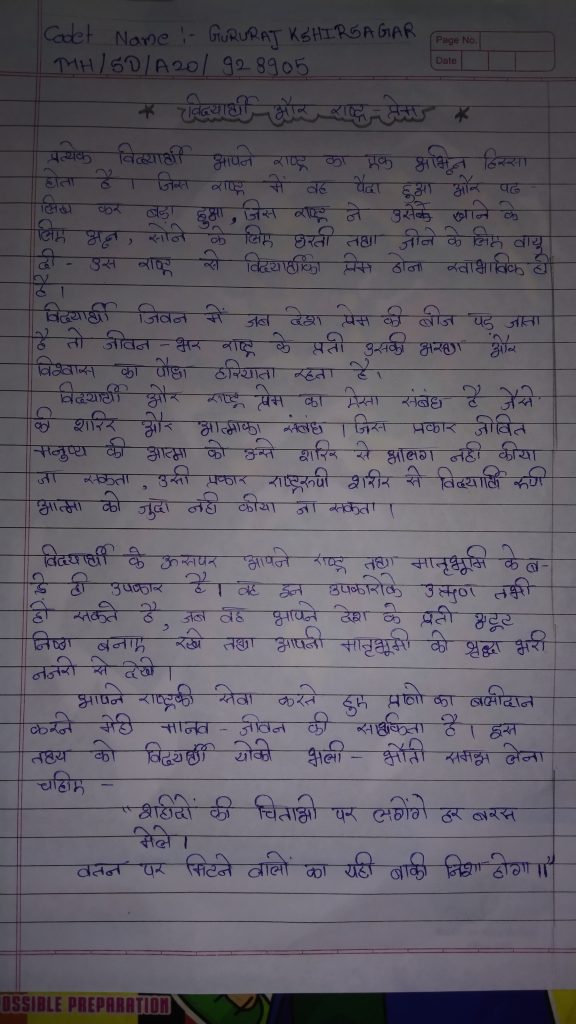 Cadet Name :- GURURAJ KSHIRSAGAR
Page No.
Date
MH/SD/A20/ 928905
* विद्यार्थी और राष्ट्र-प्रेम *
प्रत्येक विद्यार्थी आपने राष्ट्र का एक अभिन्न हिस्सा
होता है । जिस राष्ट्र में वह पैदा हुआ और पढ-
लिख कर बडा हुआ, जिस राष्ट्र ने उसके खाने के
लिए अन्न, सोने के लिए धरती तथा जीने के लिए वायू
दी - उस राष्ट्र से विद्यार्थीका प्रेम होना स्वाभाविक ही
है ।
विद्यार्थी जिवन में जब देश प्रेम की बीज पड़ जाता
है तो जीवन-भर राष्ट्र के प्रती उसकी और
विश्वास का पौधा हरियाता रहता है ।
विद्यार्थी और राष्ट्र प्रेम का ऐसा संबंध है जैसे
की शरिर और आत्माका संबंध । जिस प्रकार जीवित
मनुष्य की आत्मा को उसे शरिर से आलग नही कीया
जा सकता, उसी प्रकार राष्ट्ररुपी शरीर से विद्यार्थी रुपी
आत्मा को जुदा नही कीया जा सकता ।
विद्यार्थी के आपने राष्ट्र तथा मातृभूमि के ब-
डे ही उपकार है । वह इन उपकारोके तभी
हो सकते है, जब वह आपने देश के प्रती अटूट
निष्ठा बनाए रखे तथा आपनी मातृभूमी को श्रद्धा भरी
नजरो से देखे ।
आपने राष्ट्रकी सेवा करते हुए प्राणो का बलीदान
करने मेही मानव-जीवन की सार्थकता है । इस
तथ्य को विद्यार्थी योको भली-भाँती समझ लेना
चहीए -
"शहीदों की चिताओ पर लगेंगे हर बरस
मेले ।
वतन पर मिटने वालों का यही बाकी निशा होगा ॥"
OSSIBLE PREPARATION